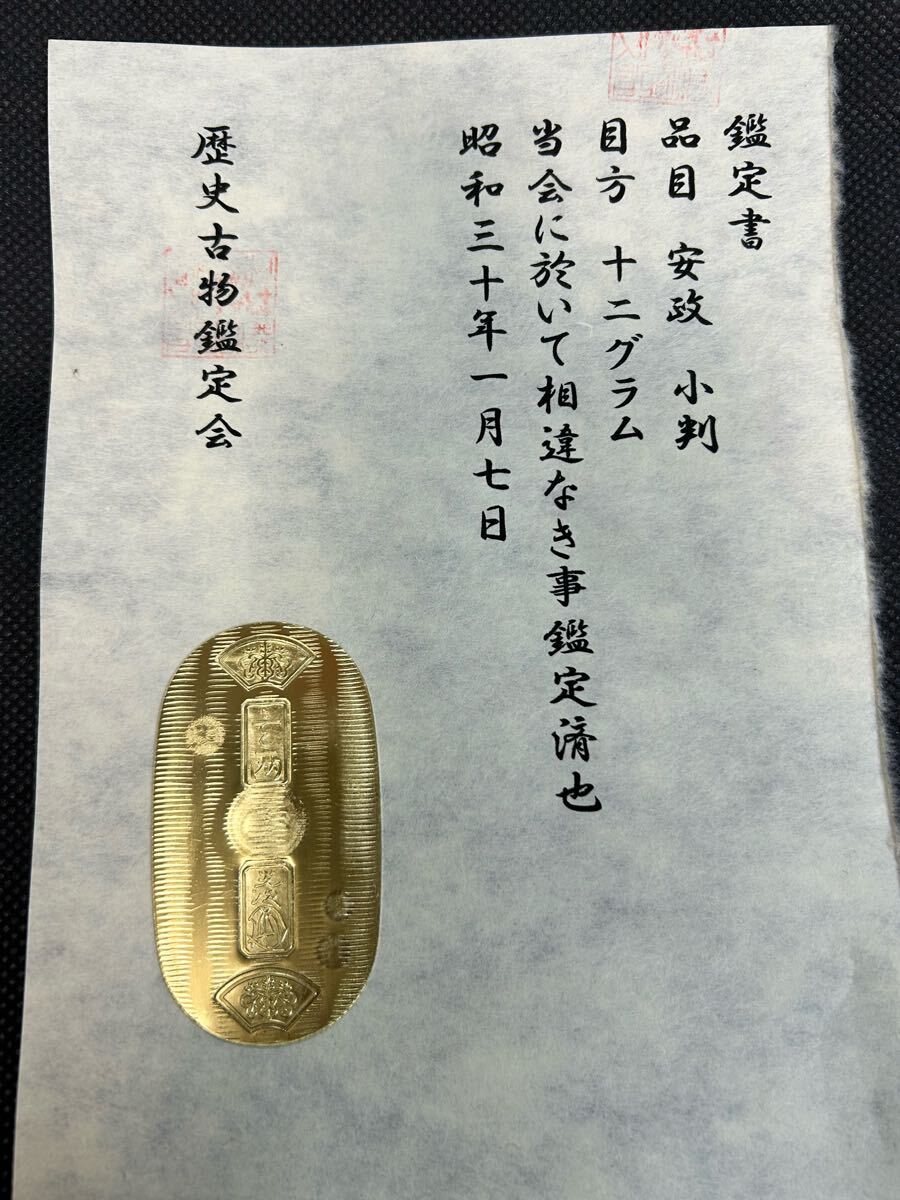 鑑定書
品目 安政 小判
目方 十二グラム
当会に於いて相違なき事鑑定済也
昭和三十年一月七日
歴史古物鑑定会